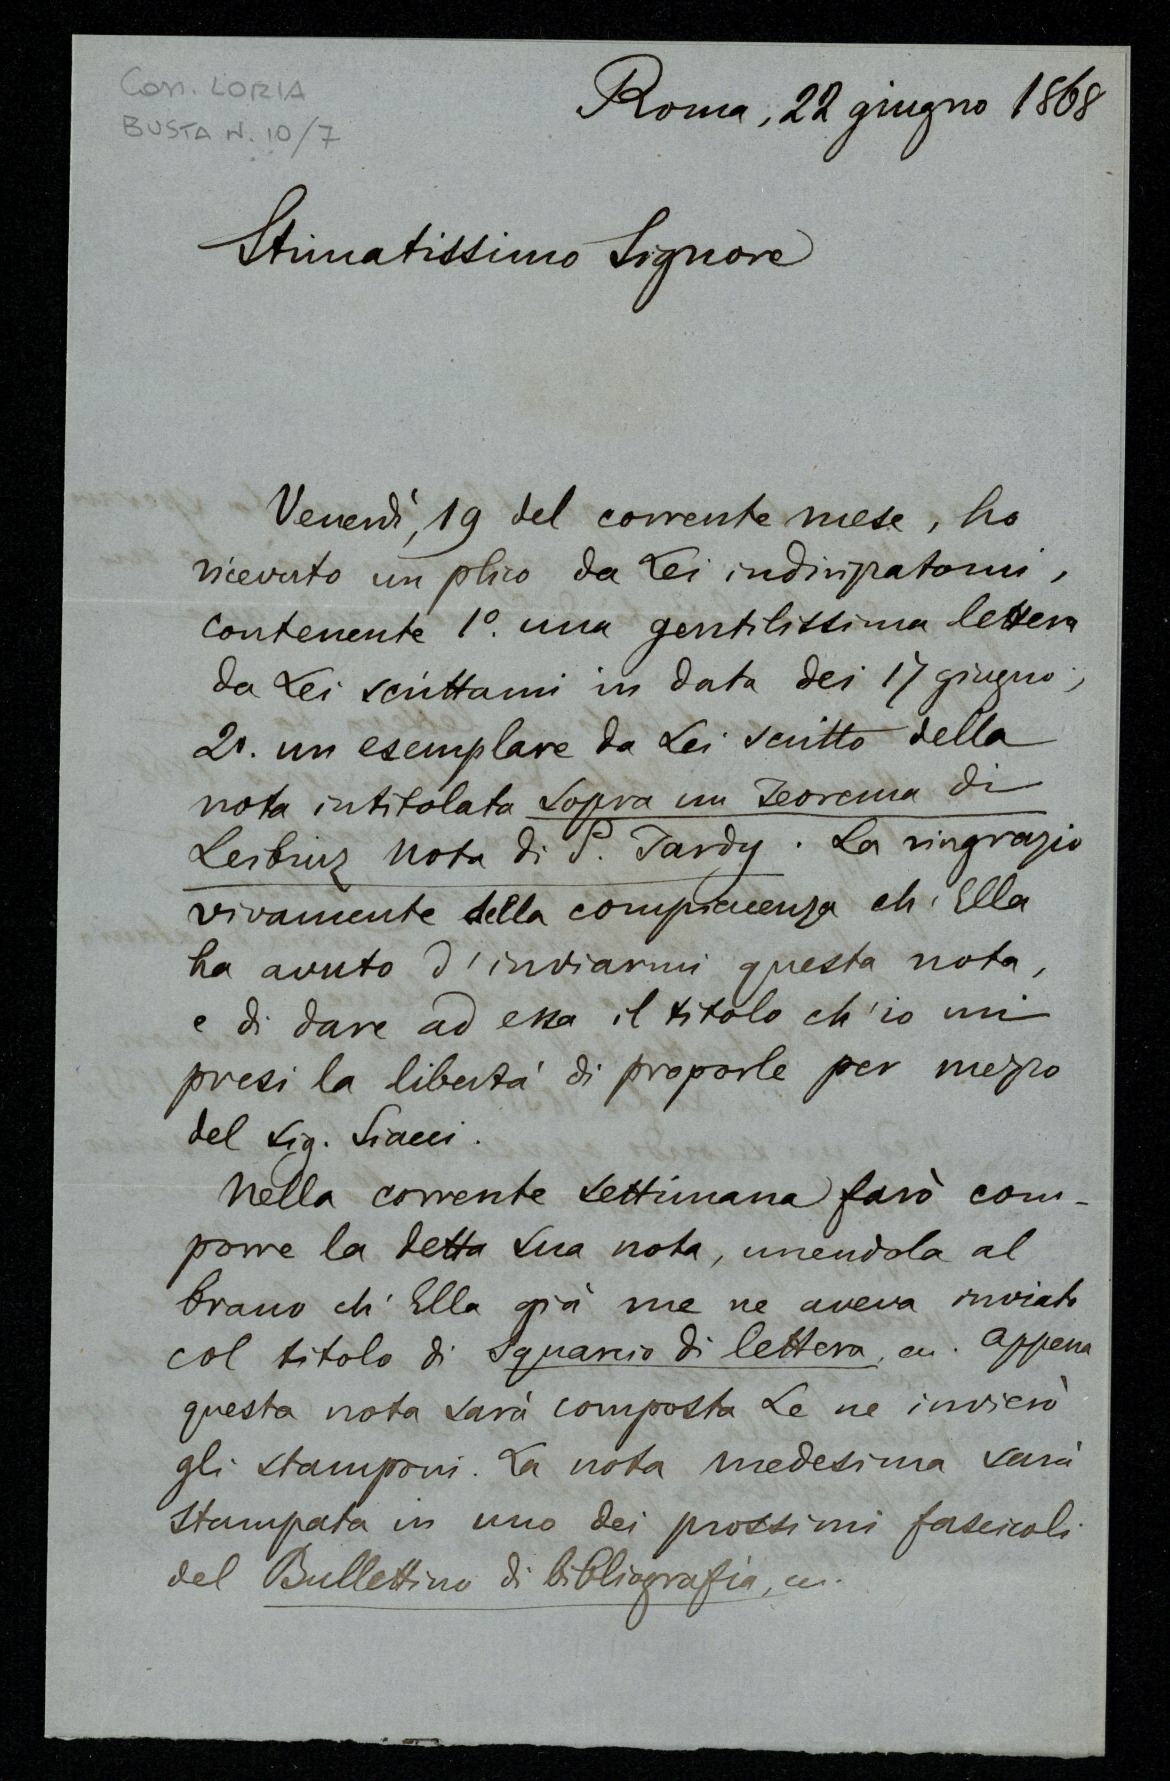 Con. LORIA
BUSTA N. 10/7
Roma, 22 giugno 1868
Stimatissimo Signore
Venerdì, 19 del corrente mese, ho
ricevuto un plico da Lei indirizzatomi,
contenente 1º. una gentilissima lettera
da Lei scrittami in data dei 17 giugno,
2º. un esemplare da Lei scritto della
nota intitolata Sopra un Teorema di
Leibniz Nota di P. Tardy. La ringrazio
vivamente della compiacenza ch'Ella
ha avuto d'inviarmi questa nota,
e di dare ad essa il titolo ch'io mi
presi la libertà di proporle per mezzo
del Sig. Siacci.
Nella corrente settimana farò com-
porre la detta sua nota, unendola al
brano ch'Ella già me ne aveva inviato
col titolo di Squarcio di lettera, ec. Appena
questa nota sarà composta Le ne invierò
gli stamponi. La nota medesima sarà
stampata in uno dei prossimi fascicoli
del Bullettino di bibliografia, ec.